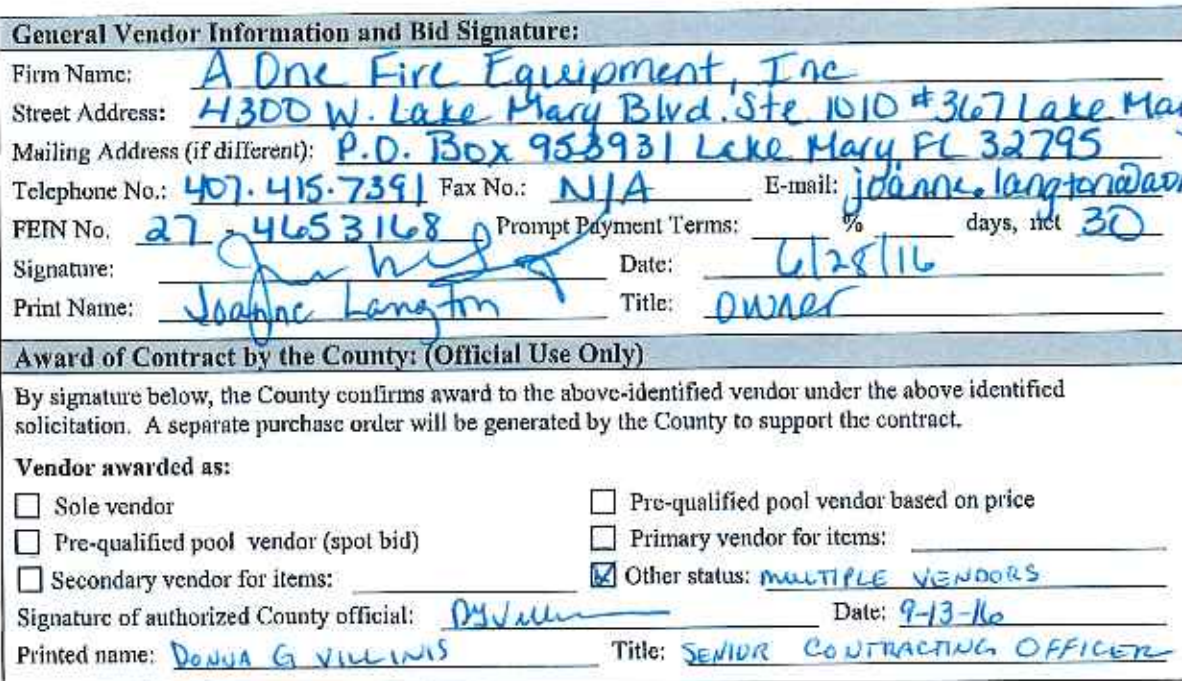 General Vendor Information and Bid Signature:
Firm Name: A One Fire Equipment, Inc
Street Address: 4300 W. Lake Mary Blvd. Ste 1010 #367 Lake Mar
Mailing Address (if different): P.O. Box 953931 Lake Mary, FL 32795
Telephone No.: 407.415.7391 Fax No.: N/A E-mail: joanne.langton@ao
FEIN No. 27-4653168 Prompt Payment Terms: ___ % ___ days, net 30
Signature: Date: 6/28/16
Print Name: Joanne Langton Title: owner
Award of Contract by the County: (Official Use Only)
By signature below, the County confirms award to the above-identified vendor under the above identified
solicitation. A separate purchase order will be generated by the County to support the contract.
Vendor awarded as:
☐ Sole vendor ☐ Pre-qualified pool vendor based on price
☐ Pre-qualified pool vendor (spot bid) ☐ Primary vendor for items: ___
☐ Secondary vendor for items: ___ ☒ Other status: MULTIPLE VENDORS
Signature of authorized County official: Date: 9-13-16
Printed name: DONNA G VILLINIS Title: SENIOR CONTRACTING OFFICER